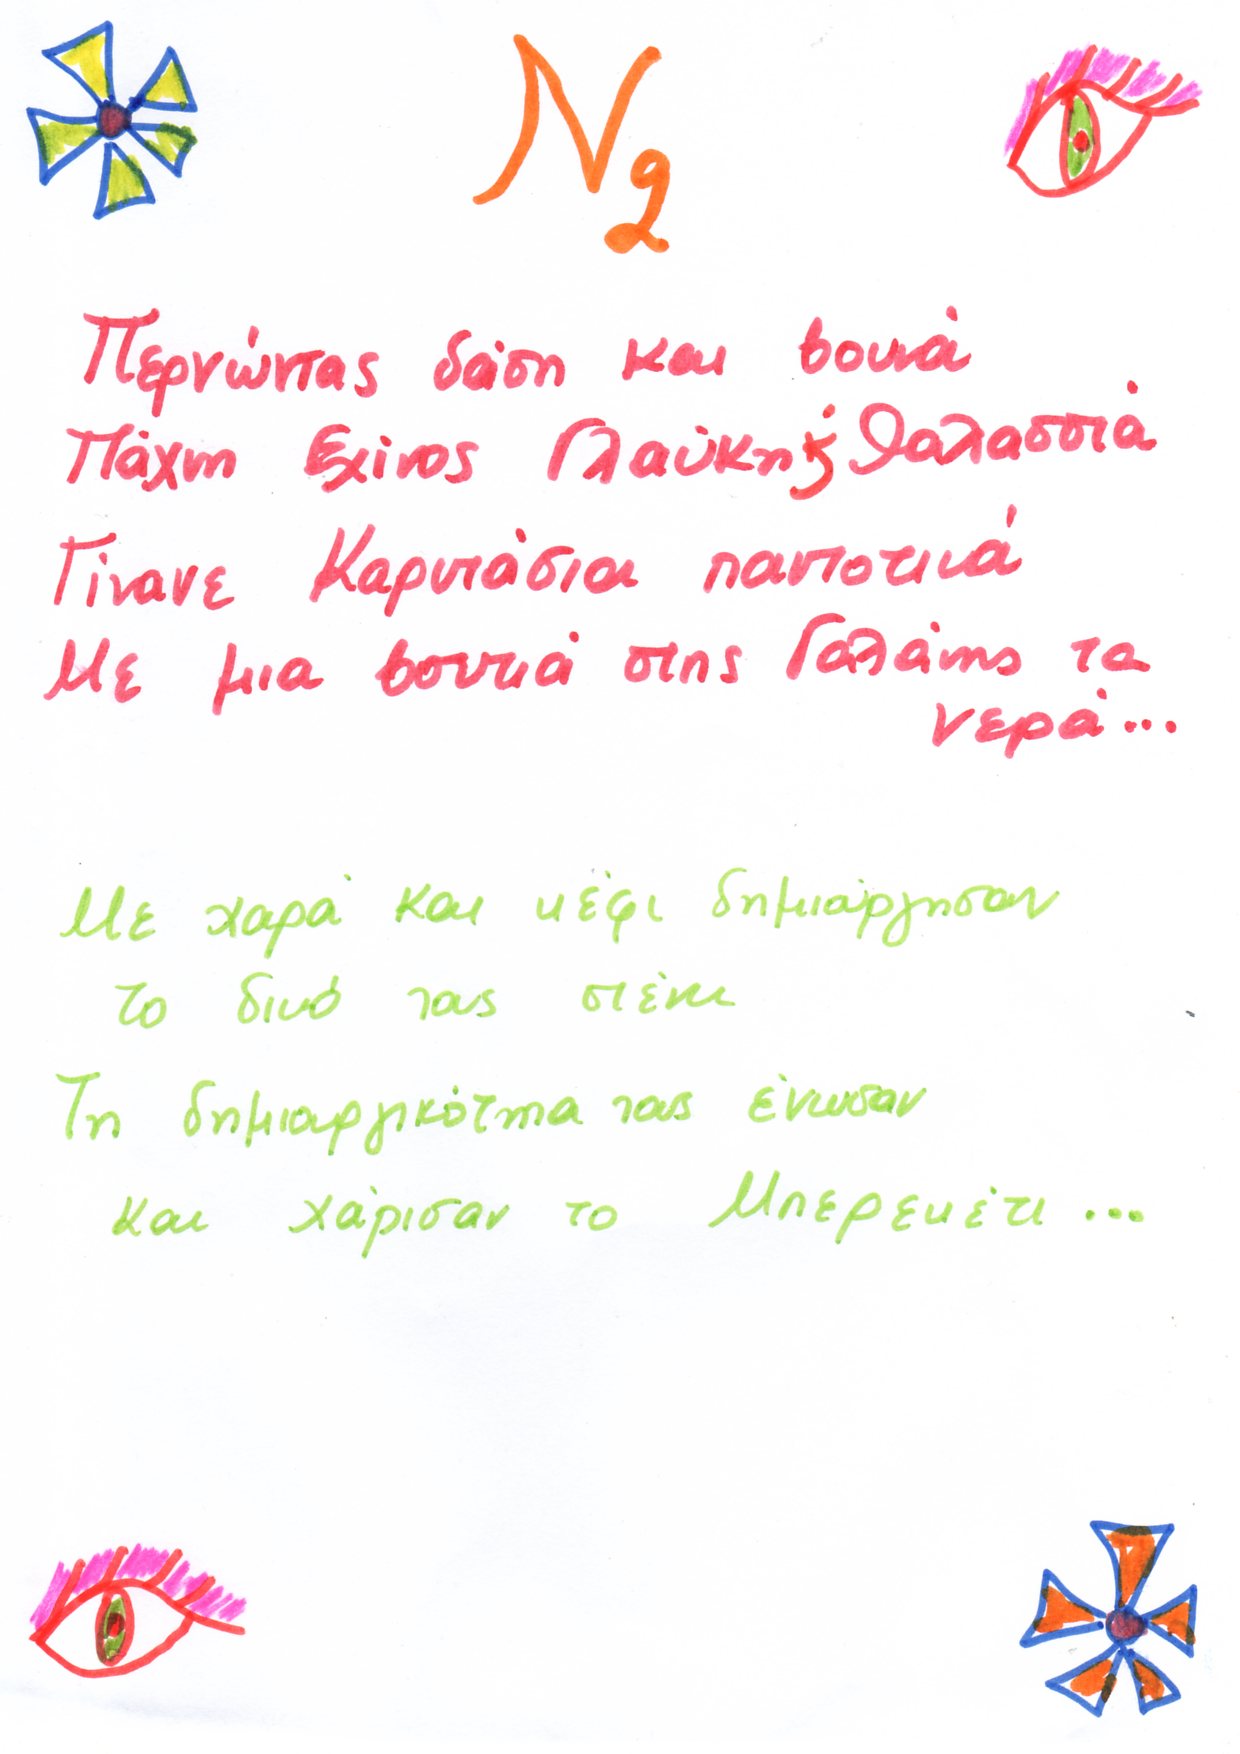 N2
Περνώντας δάση και βουνά
Πάχνη Εχίνος Γλαύκη ξ θαλασσιά
Γίνανε Καρντάσια παντοτινά
Με μια βουτιά στης Γαλάνης τα
νερά...
Με χαρά και κέφι δημιούργησαν
το δικό τους στέκι
Τη δημιουργικότητα τους ένωσαν
και χάρισαν το Μπερεκέτι...